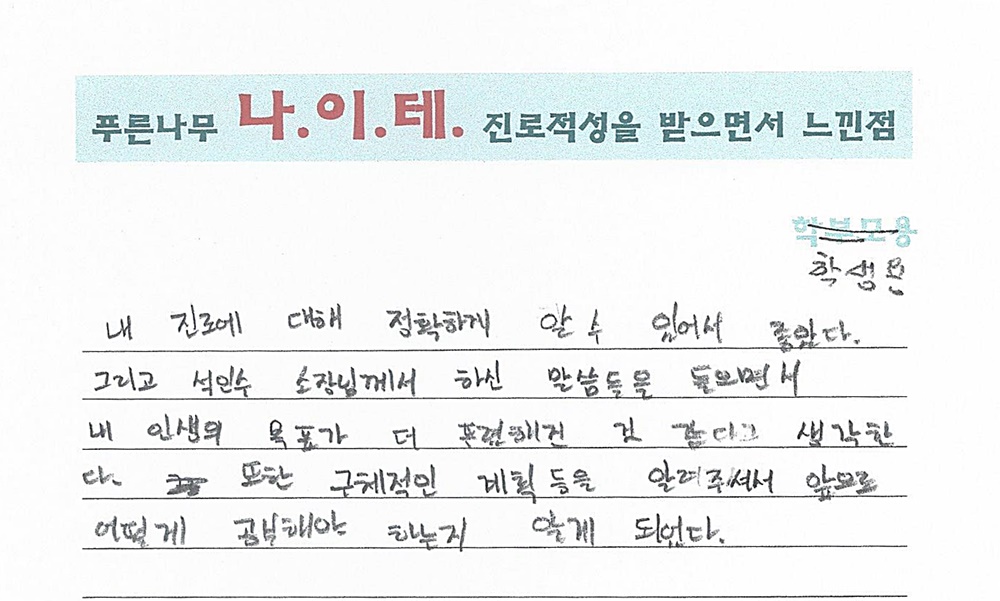 푸른나무 나.이.테. 진로적성을 받으면서 느낀점
학부모용
학생용
내 진로에 대해 정확하게 알 수 있어서 좋았다.
그리고 석인수 소장님께서 하신 말씀들을 들으면서
내 인생의 목표가 더 뚜렷해진 것 같다고 생각한
다. 또한 구체적인 계획들을 알려주셔서 앞으로
어떻게 공부해야 하는지 알게 되었다.